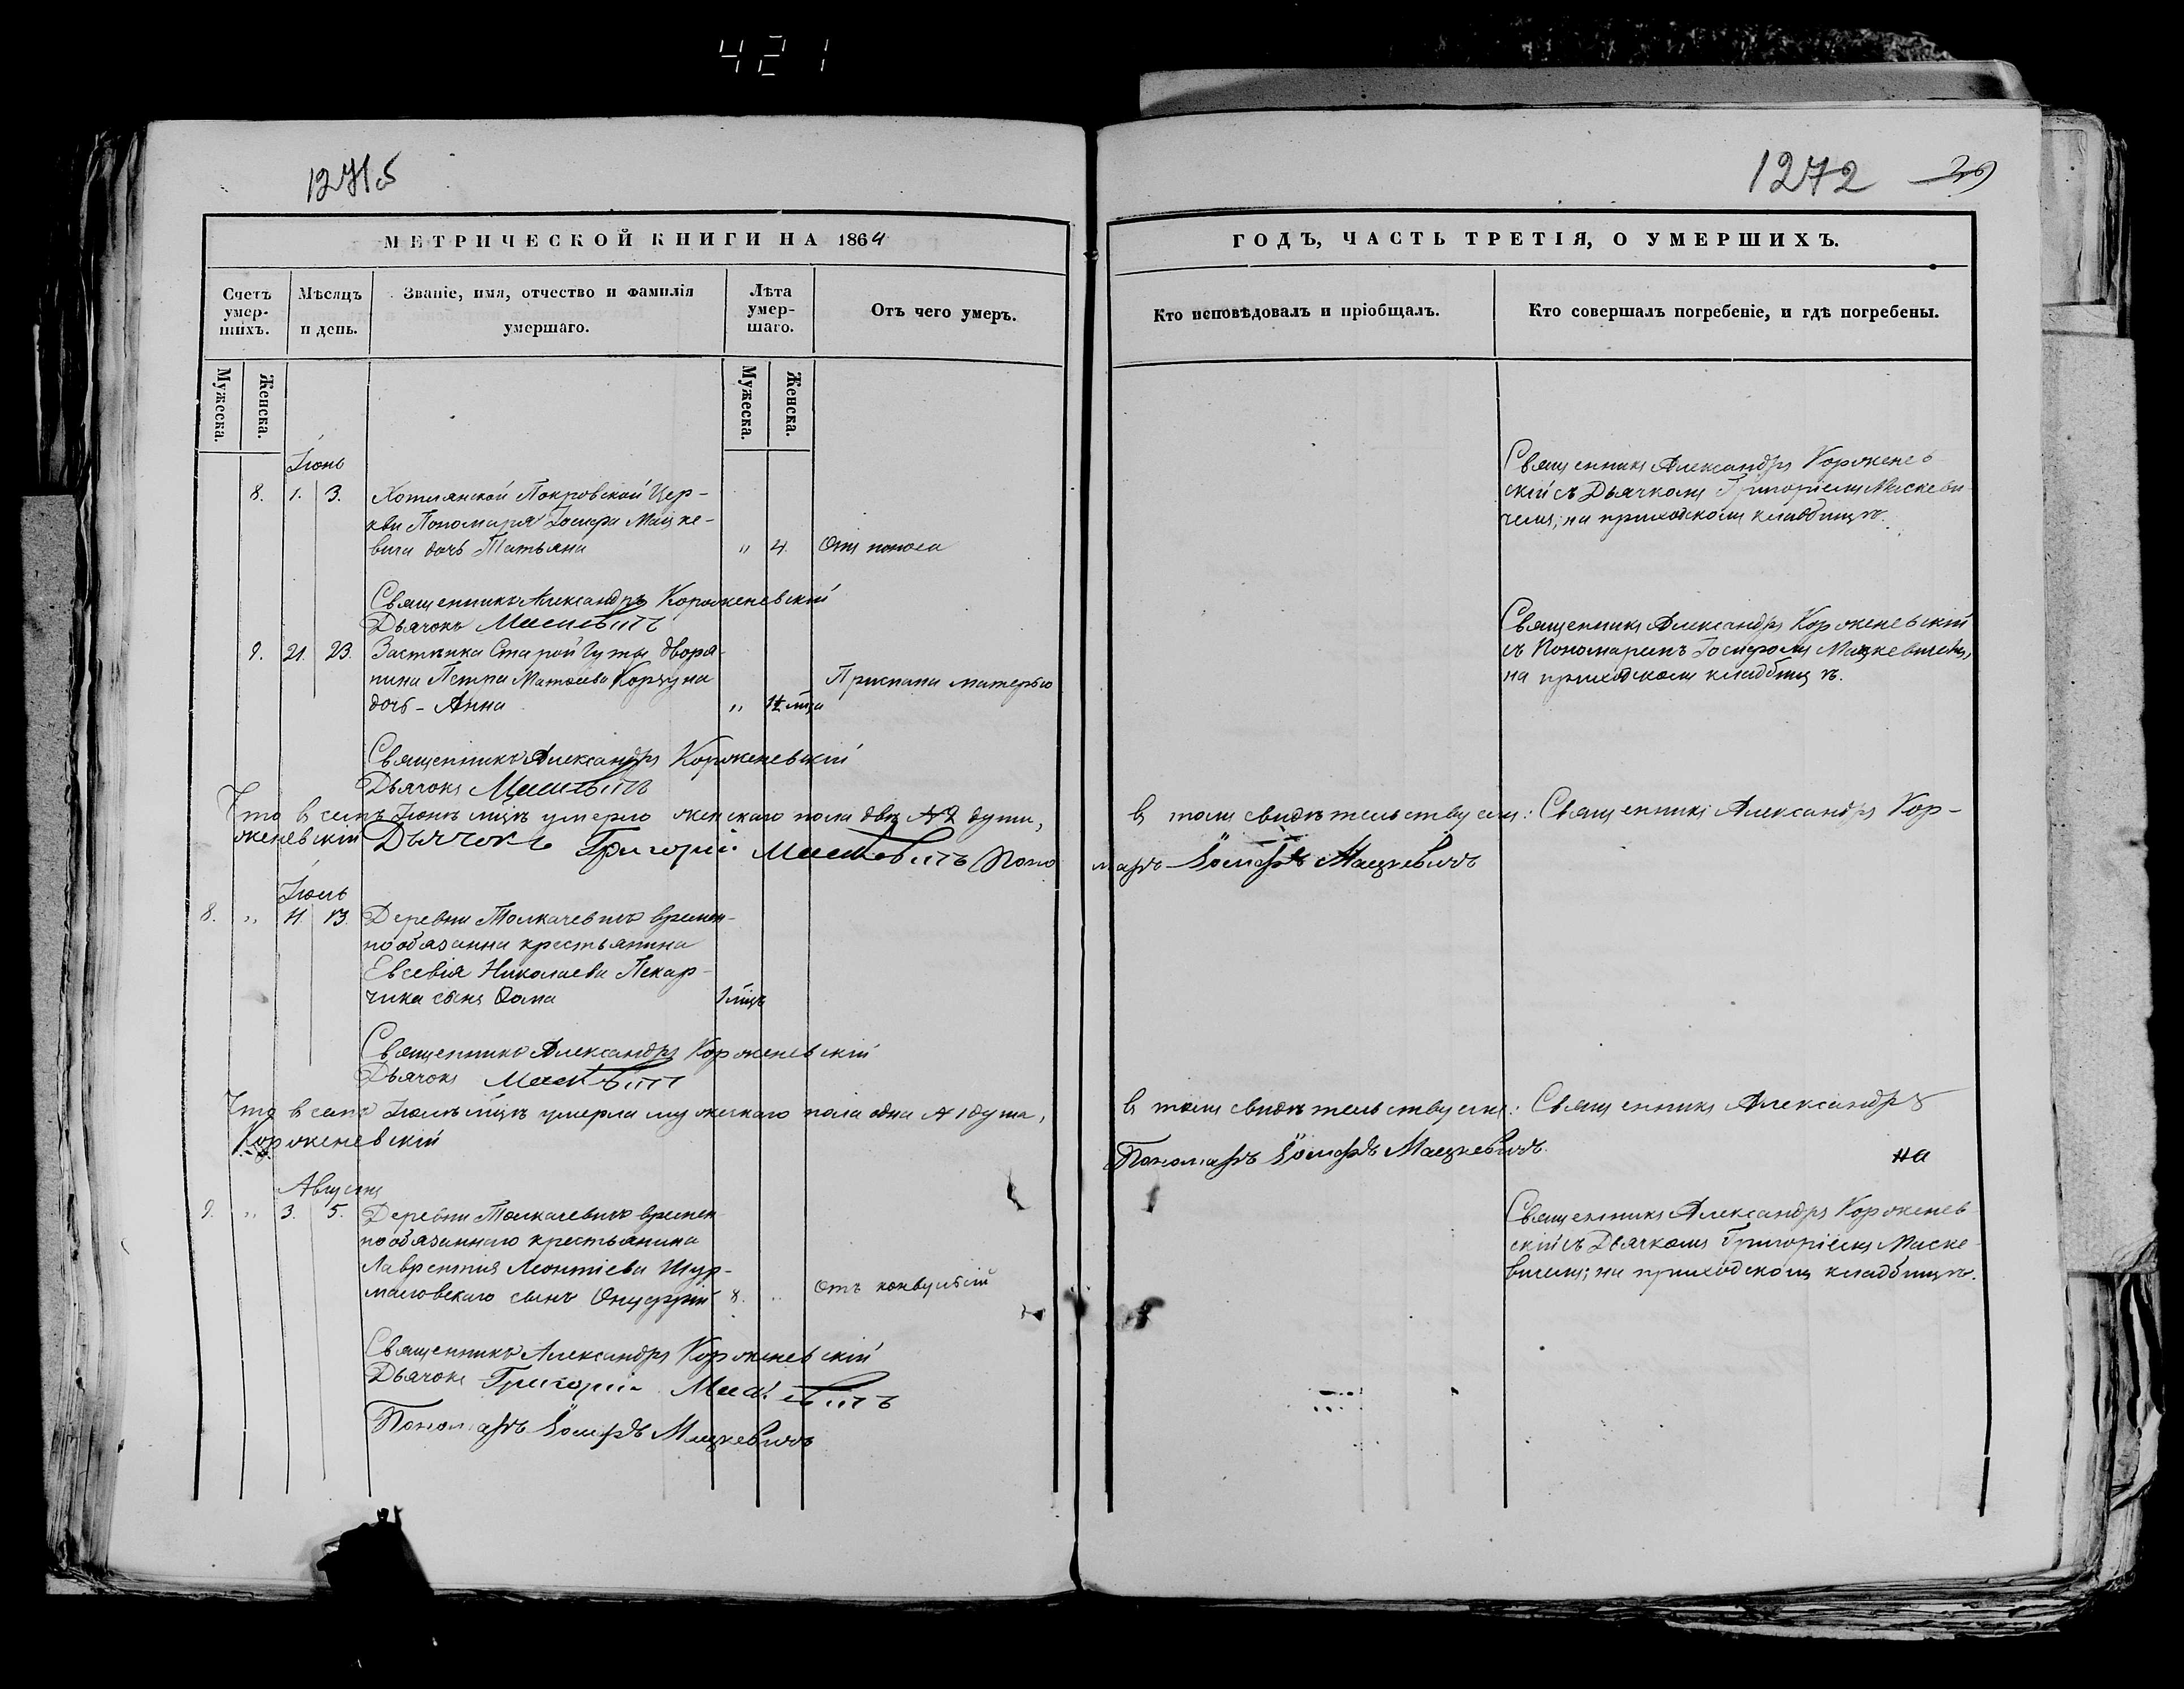 421
1271об
1272 26
МЕТРИЧЕСКОЙ КНИГИ НА 1864
ГОДЪ, ЧАСТЬ ТРЕТІЯ, О УМЕРШИХЪ.
Счетъ умер-шихъ.
Мѣсяцъ и день.
Званіе, имя, отчество и фамилія умершаго.
Лѣта умер-шаго.
Отъ чего умеръ.
Кто исповѣдовалъ и пріобщалъ.
Кто совершалъ погребеніе, и гдѣ погребены.
Мужеска.
Женска.
Мужеска.
Женска.
Іюнь
8. 1. 3. Хотлянской Покровской Цер-
кви Пономаря Іосифа Мацке-
вича дочь Татьяна „ 4. Отъ поноса
Священникъ Александръ Корженев
скій съ Дьячкомъ Григоріемъ Маскеви
чемъ; на приходскомъ кладбищѣ.
Священникъ Александръ Корженевскій
Дьячокъ Маскевичъ
9. 21. 23. Застѣнка Старой Гуты дворя-
нина Петра Матѳеева Коржуна
дочь - Анна „ мца Приспана матерью
Священникъ Александръ Корженевскій
съ Пономаремъ Іосифомъ Мацкевичемъ,
на приходскомъ кладбищѣ.
Священникъ Александръ Корженевскій
Дьячокъ Маскевичъ
Что в семъ Іюнѣ мцѣ умерло женскаго пола двѣ № 2 души, въ томъ свидѣтельствуемъ: Священникъ Александръ Кор-
женевскій Дьячокъ Григорій Маскевичъ Поно
марь Іосифъ Мацкевичъ
Іюль
8. „ 11. 13. Деревни Толкачевичъ времен-
нообязанна крестьянина
Евсевія Николаева Пекар-
чика сынъ Ѳома 1 мцъ
Священникъ Александръ Корженевскій
Дьячокъ Маскевичъ
Что в семъ Іюлѣ мцѣ умерла мужескаго пола одна № 1 душа, въ томъ свидѣтельствуемъ: Священникъ Александръ
Корженевскій
Пономарь Іосифъ Мацкевичъ.
на
Августъ
9. „ 3. 5. Деревни Толкачевичъ времен
нообязаннаго крестьянина
Лаврентія Леонтіева Шур-
маловскаго сынъ Онуфрій 8. „ Отъ конвульсій
Священникъ Александръ Корженев
скій съ Дьячкомъ Григоріемъ Маске
вичемъ; на приходскомъ кладбищѣ.
Священникъ Александръ Корженевскій
Дьячокъ Григорій Маскевичъ
Пономарь Іосифъ Мацкевичъ